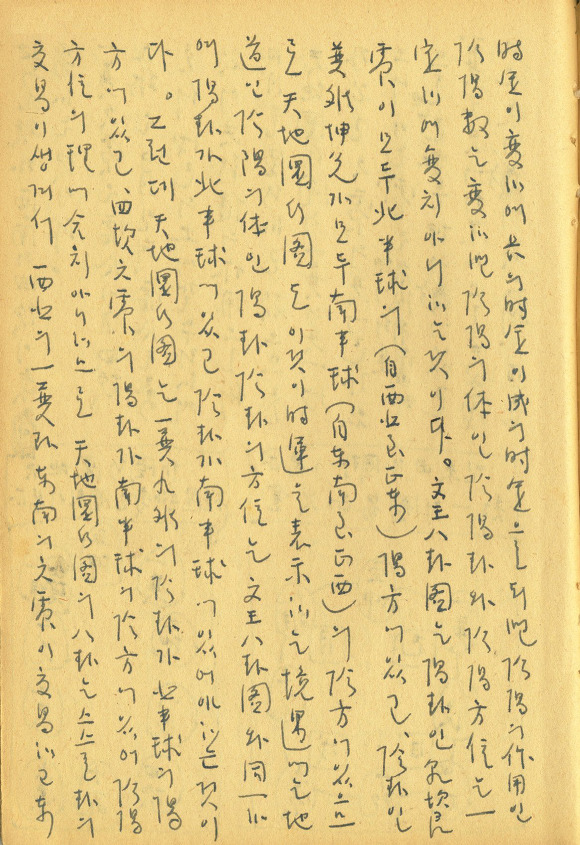 時運이 變하여 長의 時運이 成의 時運으로 되면 陰陽의 作用인
陰陽數는 變하면 陰陽의 体인 陰陽卦와 陰陽方位는 一
定하여 變치아니하는것이다。文王八卦圖는 陽卦인 乾坎艮
震이 모두 北半球의 (自西北至正東) 陽方에 있고、陰卦인
巽離坤兌가 모두 南半球 (自東南至正西)의 陰方에 있으므
로 天地圓形圖도 이것이 時運을 表示하는 境遇에는 地
道인 陰陽의 体인 陽卦陰卦의 方位는 文王八卦圖와 同一하
여 陽卦가 北半球에 있고 陰卦가 南半球에 있어야 하는것이
다。그런데 天地圓形圖는 一巽九離의 陰卦가 北半球의 陽
方에 있고、四坎六震의 陽卦가 南半球의 陰方에 있어 陰陽
方位의 理에 合치아니하므로 天地圓形圖의 八卦는 스스로 卦의
交易이생겨서 西北의 一巽과 東南의 六震이 交易하고 東